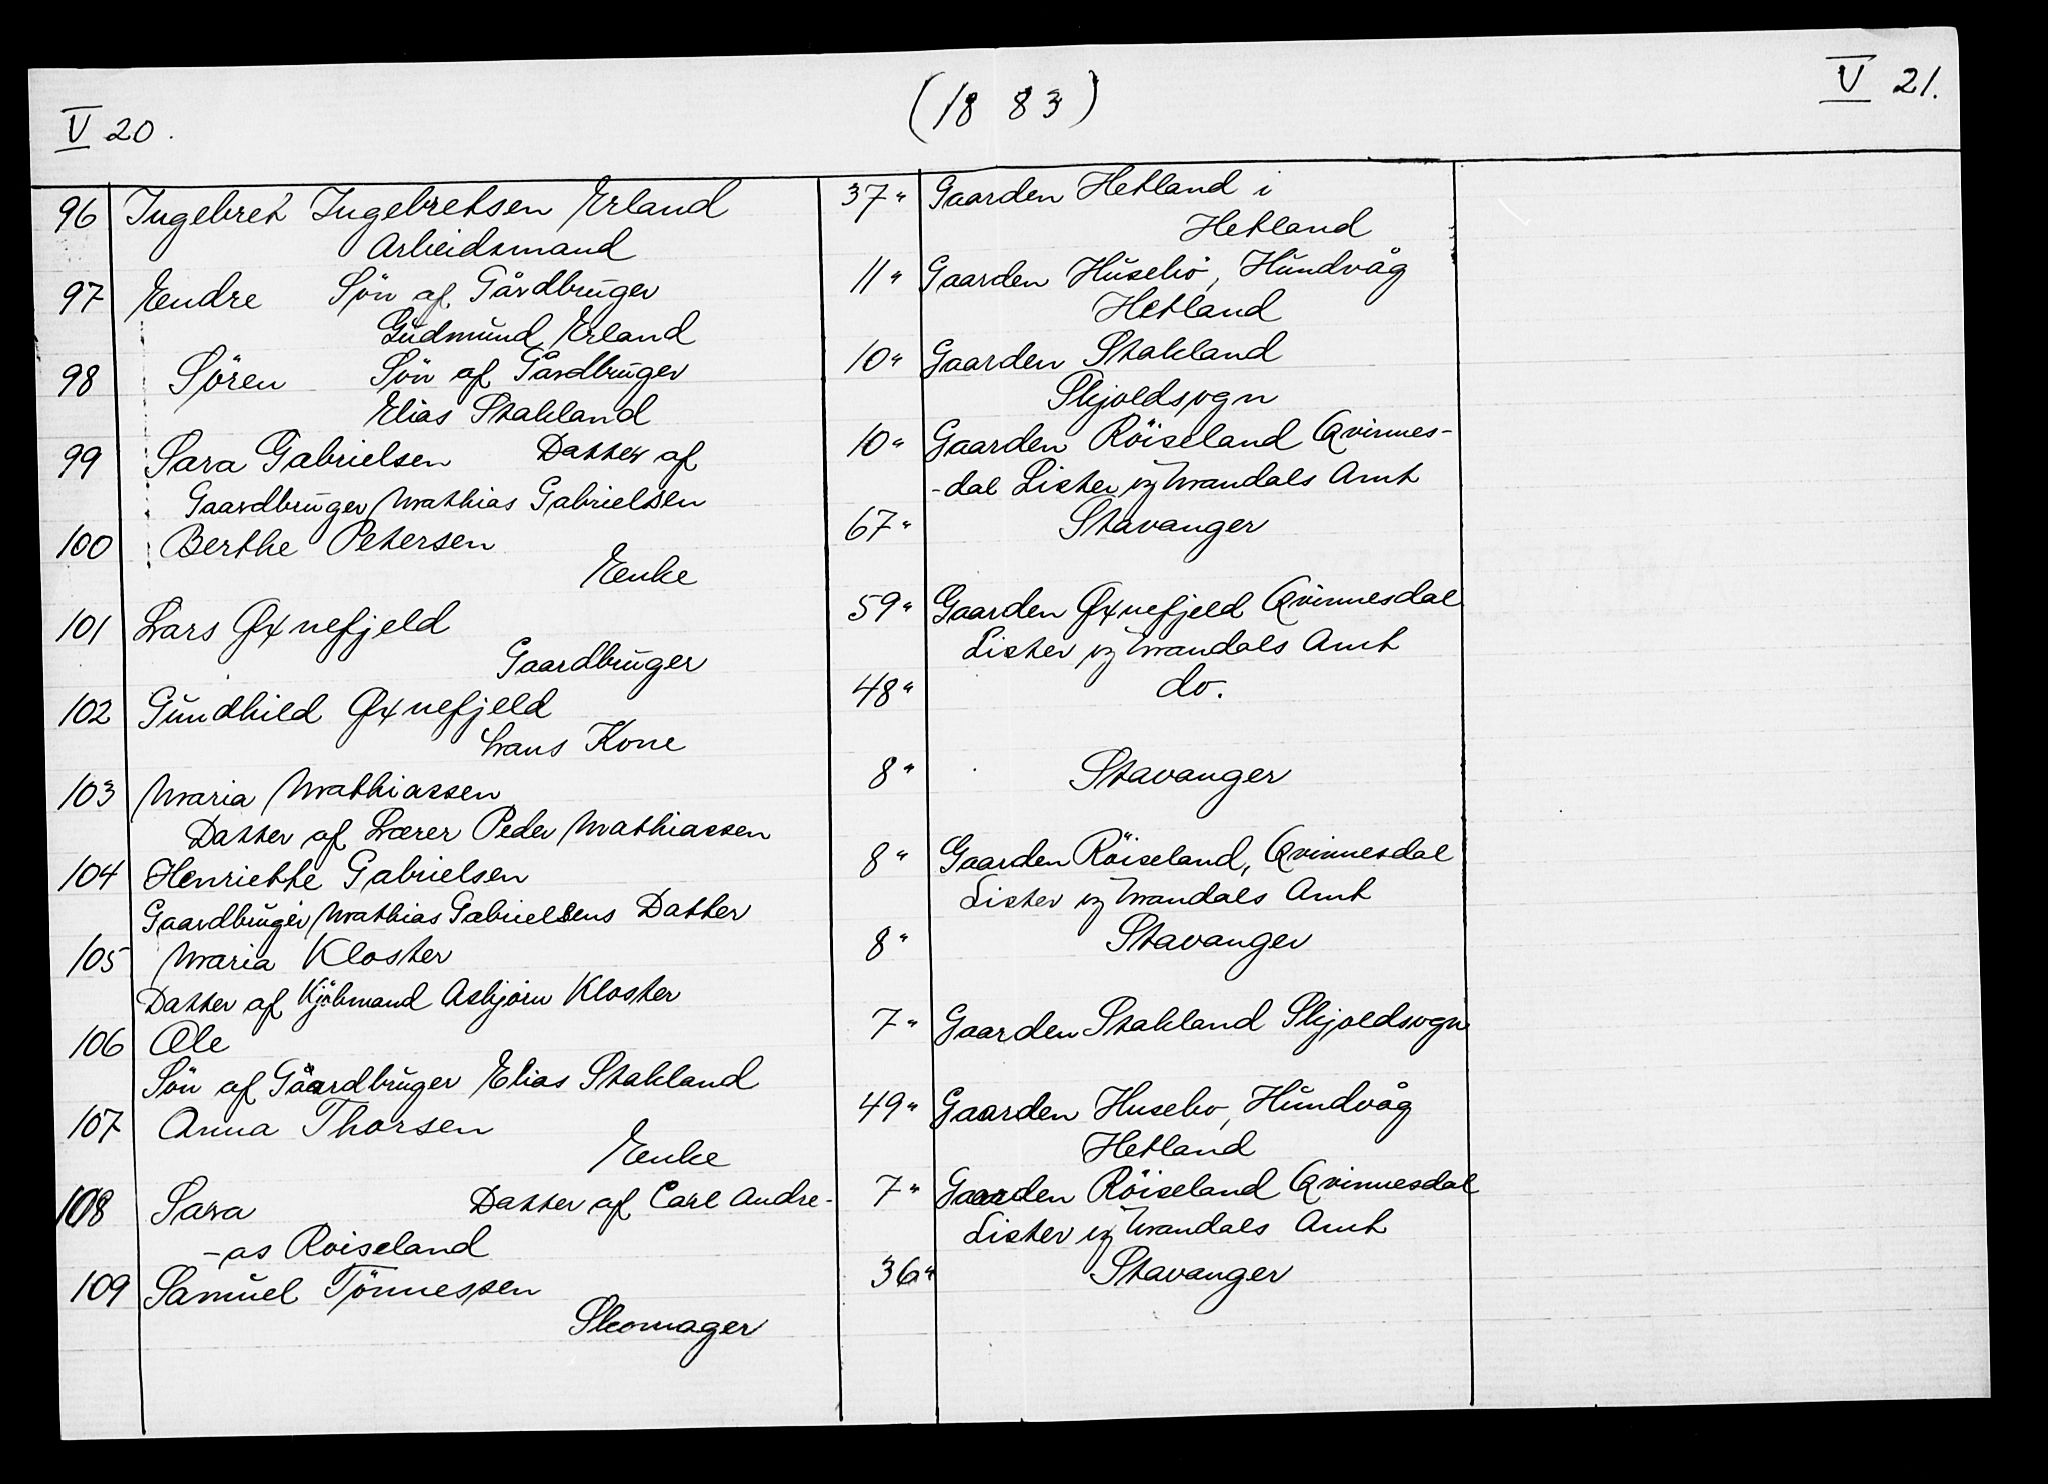 V 20.
(1883)
V 21.
96 Ingebret Ingebretsen Erland 37" Gaarden Hetland i
Arbeidsmand Hetland
97 Endre Søn af Gårdbruger 11" Gaarden Husebö, Hundvåg
Gudmund Erland Hetland
98 Sören Sön af Gårdbruger 10" Gaarden Stakland
Elias Stakland Skjoldsogn
99 Sara Gabrielsen Datter af 10" Gaarden Röiseland Qvinnes-
Gaardbruger Mathias Gabrielsen -dal Lister og Mandals Amt
100 Berthe Petersen 67" Stavanger
Enke
101 Lars Øxnefjeld 59" Gaarden Øxnefjeld Qvinnesdal
Gaardbruger Lister og Mandals Amt
102 Gundhild Øxnefjeld 48" do.
hans Kone
103 Maria Mathiassen 8" Stavanger
Datter af Lærer Peder Mathiassen
104 Henriette Gabrielsen 8" Gaarden Röiseland, Qvinnesdal
Gaardbruger Mathias Gabrielsens Datter Lister og Mandals Amt
105 Maria Kloster 8" Stavanger
Datter af Kjöbmand Asbjörn Kloster
106 Ole 7" Gaarden Stakland Skjoldsogn
Sön af Gaardbruger Elias Stakland
107 Anna Thorsen 49" Gaarden Husebo, Hundvåg
Enke Hetland
108 Sara Datter af Carl Andre- 7" Gaarden Röiseland Qvinnesdal
-as Roiseland Lister og Mandals Amt
109 Samuel Tönnessen 36" Stavanger
Skomager